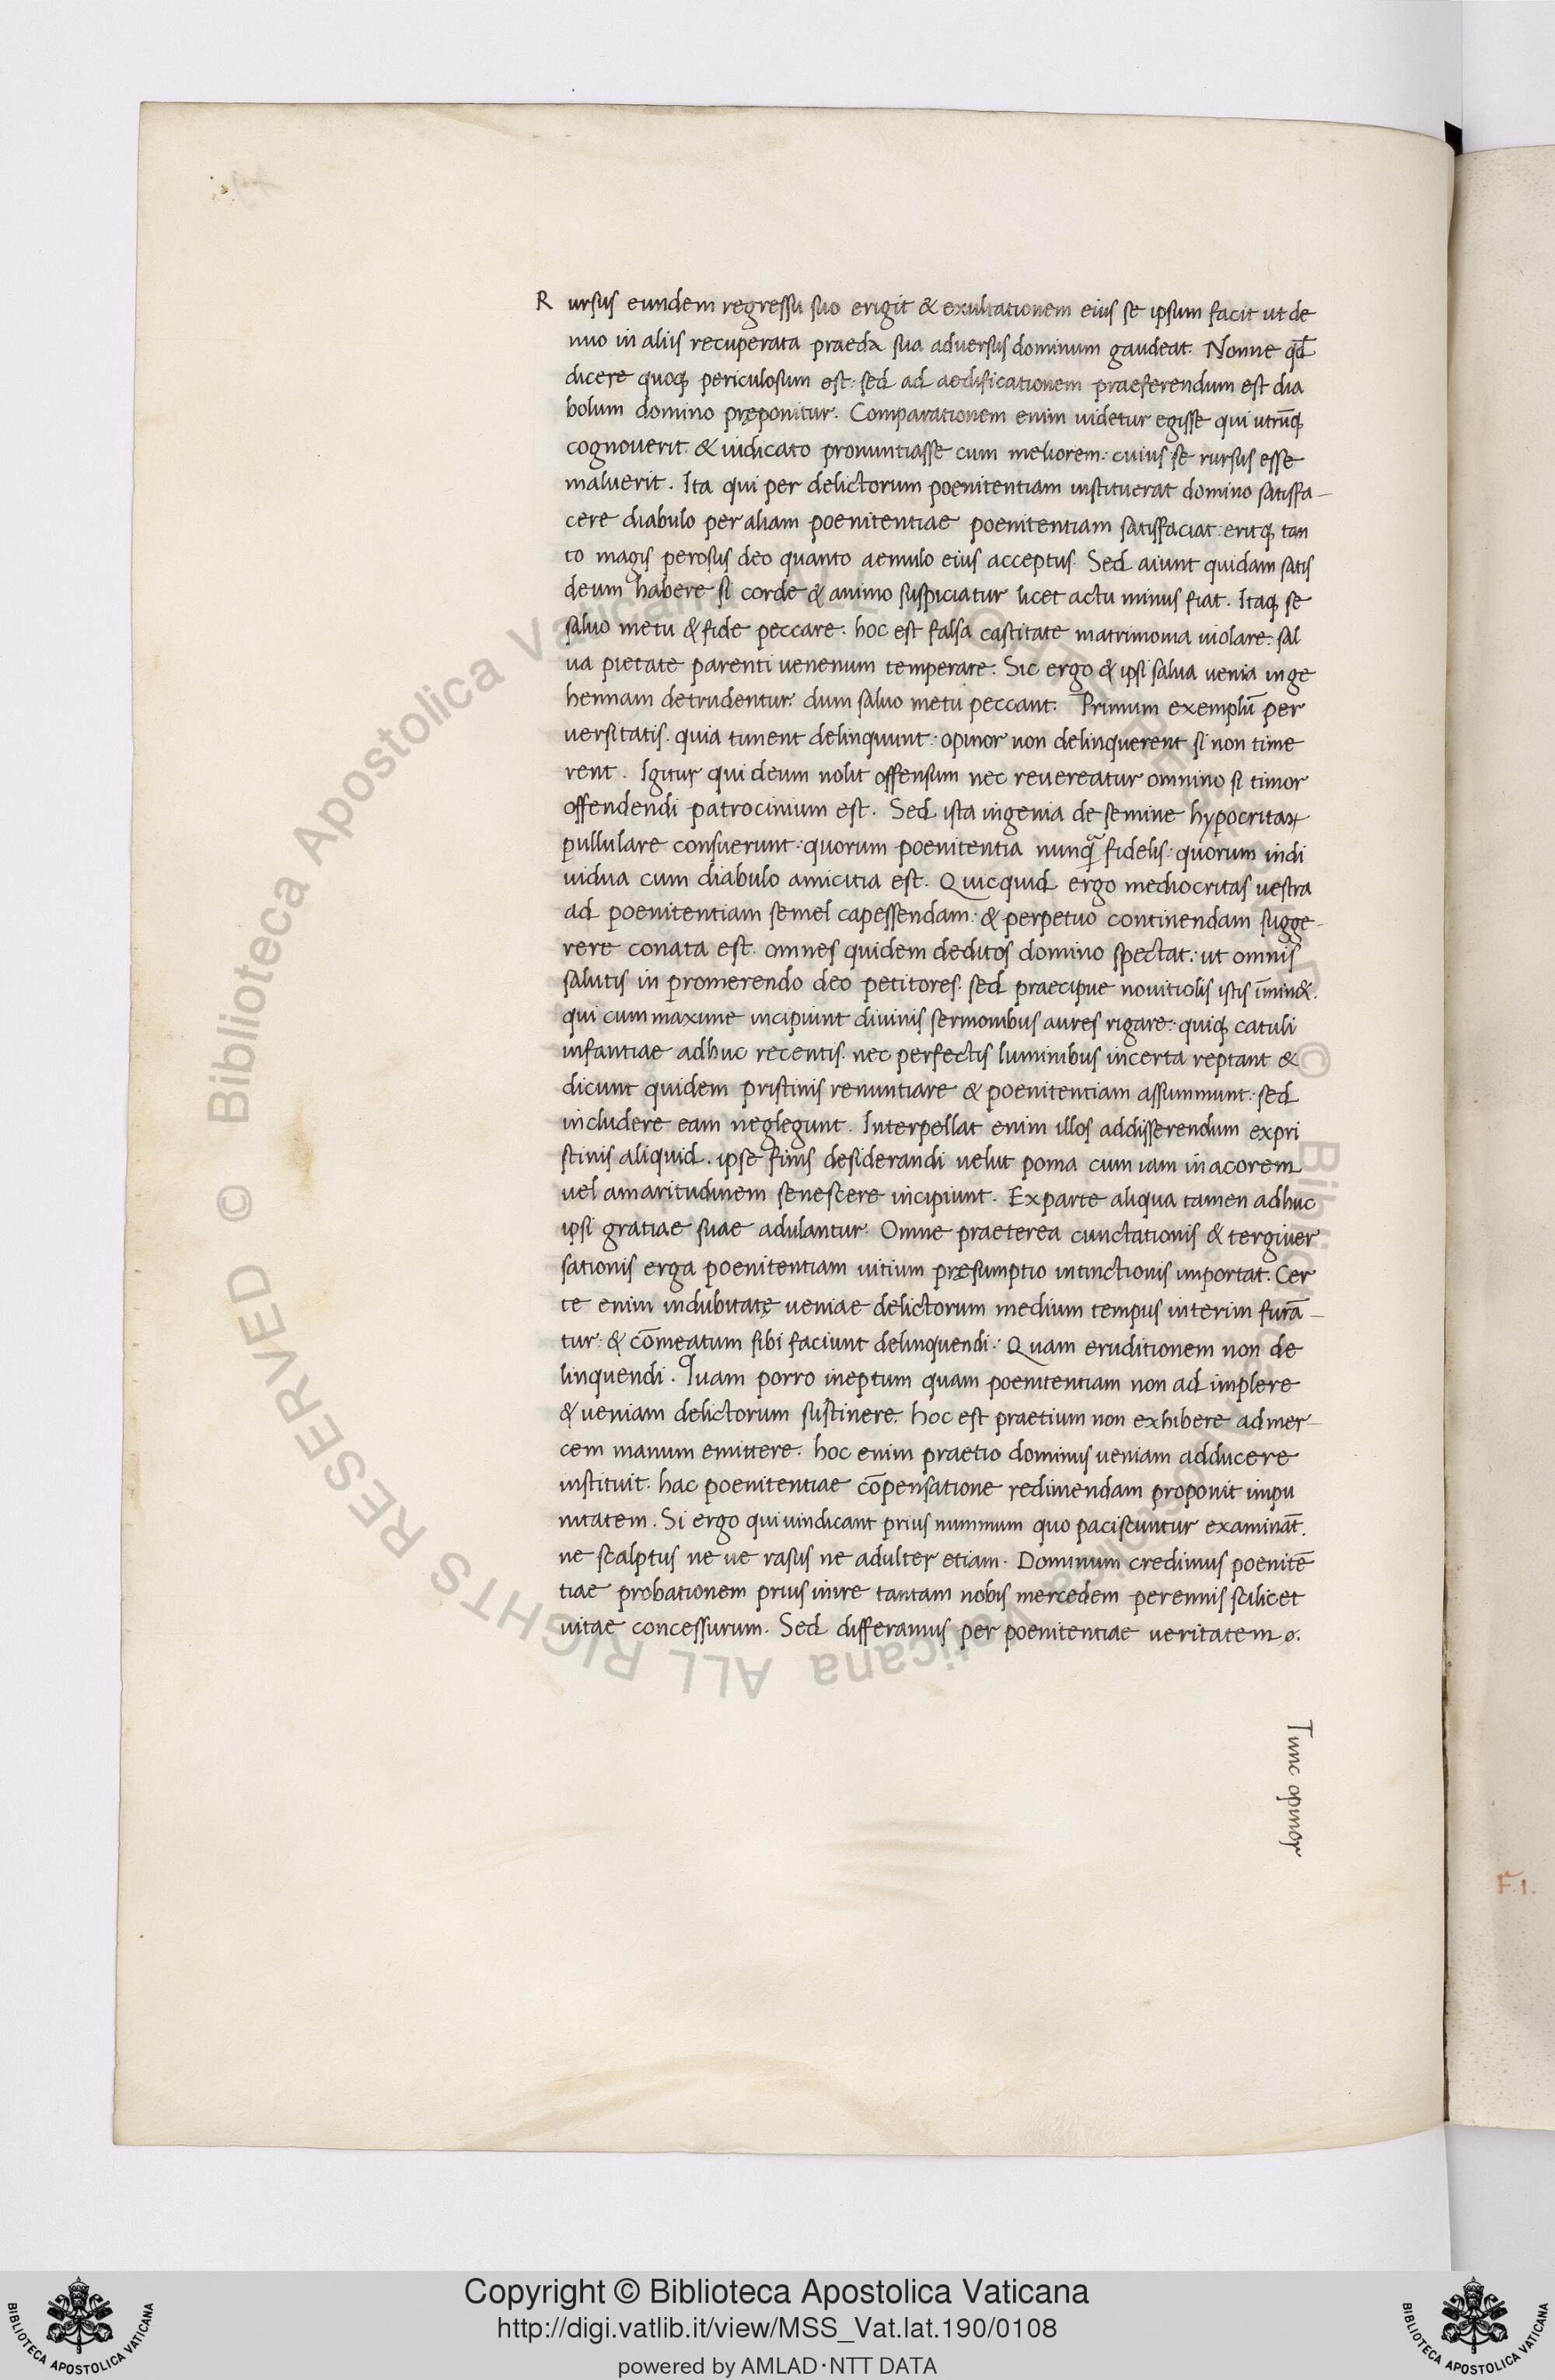 Rursus eundem regressu suo erigit & exultationem eius se ipsum facit ut de
nuo in aliis recuperata praeda sua adversus dominum gaudeat. Nonne qd̄
dicere quoq; periculosum est: sed ad aedificationem praeferendum est dia
bolum domino pręponitur. Comparationem enim videtur egisse qui utrūq;
cognoverit. & iudicato pronuntiasse eum meliorem: cuius se rursus esse
maluerit. Ita qui per delictorum poenitentiam instituerat domino satisfa-
cere diabulo per aliam poenitentiae poenitentiam satisfaciat: eritq; tan
to magis perosus deo quanto aemulo eius acceptus. Sed aiunt quidam satis
deum habere si corde & animo suspiciatur licet actu minus fiat. Itaq; se
salvo metu & fide peccare. hoc est falsa castitate matrimonia violare: sal
va pietate parenti venenum temperare. Sic ergo & ipsi salva venia in ge
hennam detrudentur: dum salvo metu peccant. Primum exemplū per
versitatis. quia timent delinquunt: opinor non delinquerent si non time
rent. Igitur qui deum nolit offensum nec revereatur omnino si timor
offendendi patrocinium est. Sed ista ingenia de semine hypocritaꝝ
pullulare consuerunt: quorum poenitentia nunqᷓ fidelis: quorum indi
vidua cum diabulo amicitia est. Quicquid ergo mediocritas vestra
ad poenitentiam semel capessendam: & perpetuo continendam sugge-
rere conata est. omnes quidem deditos domino spectat: ut omnis
salutis in promerendo deo petitores. sed praecipue novitiolis istis īmin&.
qui cum maxime incipiunt divinis sermonibus aures rigare: quiq; catuli
infantiae adhuc recentis. nec perfectis luminibus incerta reptant &
dicunt quidem pristinis renuntiare & poenitentiam assummunt: sed
includere eam neglegunt. Interpellat enim illos addisserendum expri
stinis aliquid. ipse finis desiderandi velut poma cum iam in acorem
vel amaritudinem senescere incipiunt. Ex parte aliqua tamen adhuc
ipsi gratiae suae adulantur. Omne praeterea cunctationis & tergiver
sationis erga poenitentiam vitium pręsumptio intinctionis importat. Cer
te enim indubitatę veniae delictorum medium tempus interim furā-
tur: & cōmeatum sibi faciunt delinquendi: Quam eruditionem non de
linquendi. Quam porro ineptum quam poenitentiam non ad implere
& veniam delictorum sustinere. hoc est praetium non exhibere ad mer-
cem manum emittere. hoc enim praetio dominus veniam adducere
instituit. hac poenitentiae cōpensatione redimendam proponit impu
nitatem. Si ergo qui vindicant prius nummum quo paciscuntur examināt.
ne scalptus ne ve rasus ne adulter etiam. Dominum credimus poenitē
tiae probationem prius inire tantam nobis mercedem perennis scilicet
vitae concessurum. Sed differamus per poenitentiae veritatem ø.
Tunc opinor
F.1.
© Biblioteca Apostolica Vaticana ALL RIGHTS RESERVED
Copyright © Biblioteca Apostolica Vaticana
http://digi.vatlib.it/view/MSS_Vat.lat.190/0108
powered by AMLAD·NTT DATA
BIBLIOTECA APOSTOLICA VATICANA
BIBLIOTECA APOSTOLICA VATICANA